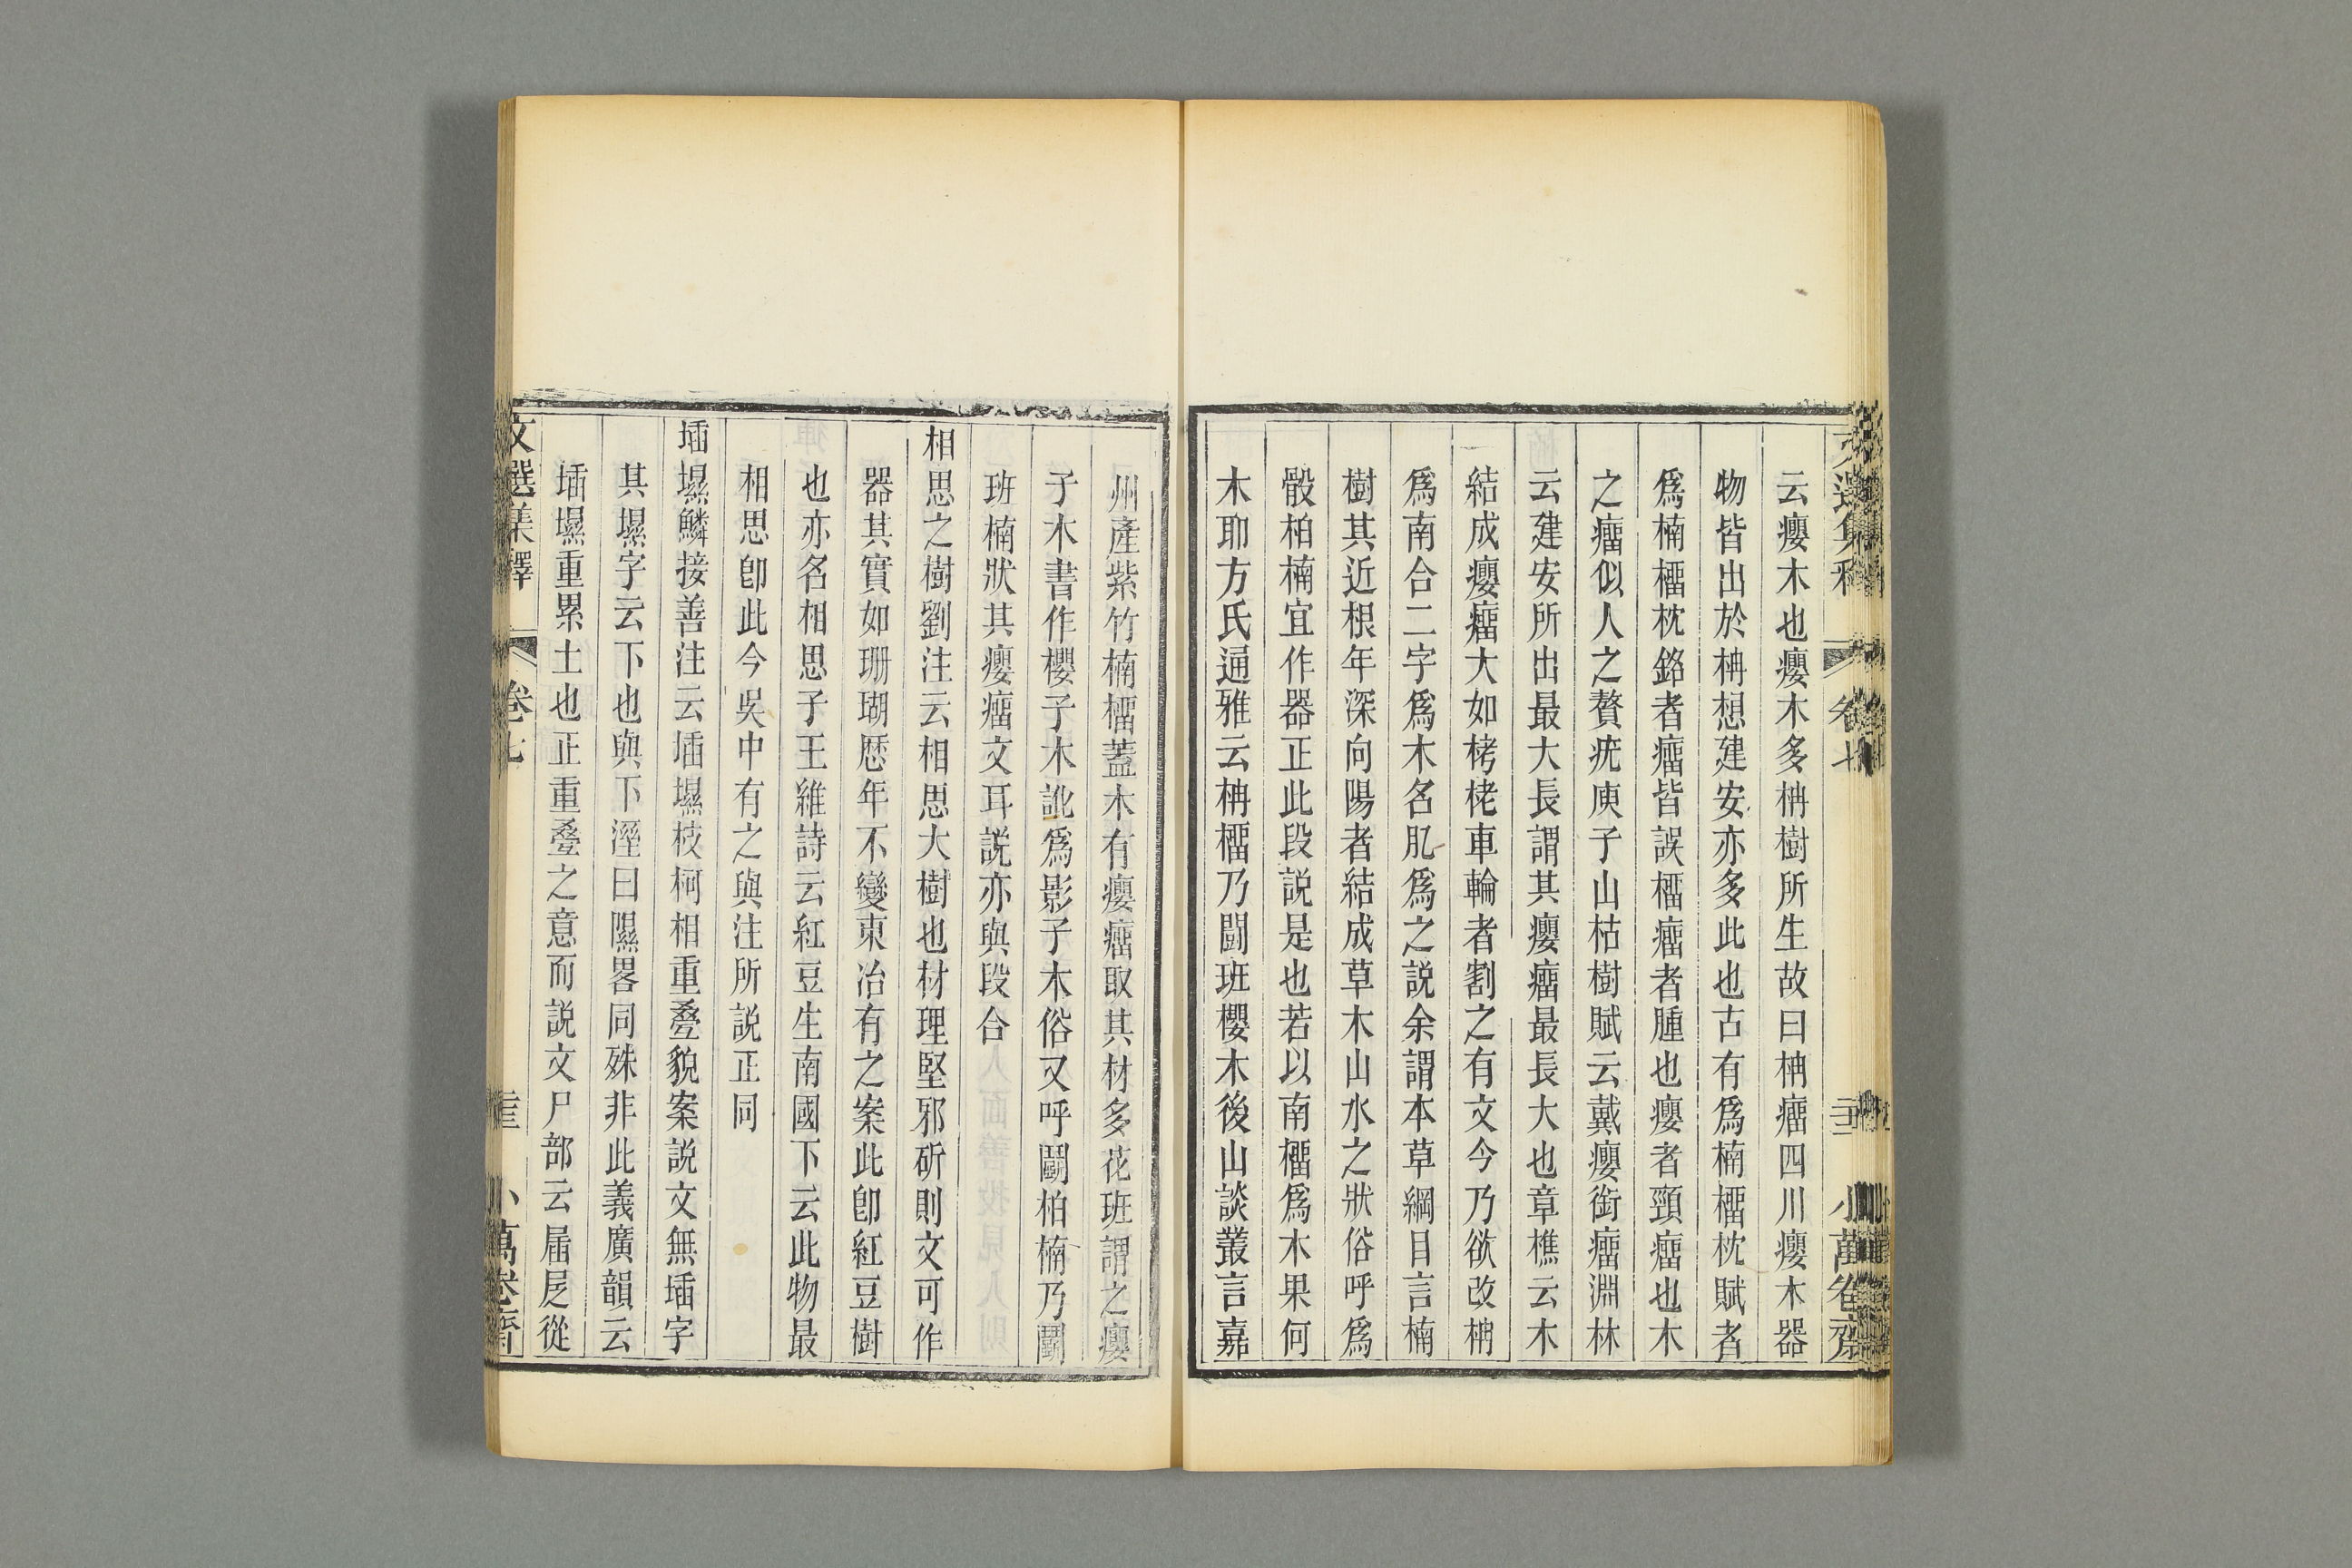 云癭木也癭木多枏樹所生故曰枏瘤四川癭木器
物皆出於枏想建安亦多此也古有爲楠榴枕賦者
爲楠榴枕銘者瘤皆誤榴瘤者腫也癭者頸瘤也木
之瘤似人之贅疣庾子山枯樹賦云戴癭銜瘤淵林
云建安所出最大長謂其癭瘤最長大也章樵云木
結成癭瘤大如栲栳車輪者割之有文今乃欲改枏
爲南合二字爲木名肊爲之說余謂本草綱目言楠
樹其近根年深向陽者結成草木山水之狀俗呼爲
骰柏楠宜作器正此段說是也若以南榴爲木果何
木耶方氏通雅云枏榴乃鬬班櫻木後山談叢言嘉
州產紫竹楠榴蓋木有癭瘤取其材多花班謂之癭
子木書作櫻子木訛爲影子木俗又呼鬭柏楠乃鬭
班楠狀其癭瘤文耳說亦與段合
相思之樹劉注云相思大樹也材理堅邪斫則文可作
器其實如珊瑚歴年不變東冶有之案此卽紅豆樹
也亦名相思子王維詩云紅豆生南國下云此物最
相思卽此今吳中有之與注所說正同
㙈㙷鱗接善注云㙈㙷枝柯相重疊貌案說文無㙈字
其㙷字云下也與下溼曰隰畧同殊非此義廣韻云
㙈㙷重累土也正重疊之意而說文尸部云屇㞋從
文選集釋
卷七
小萬卷齋